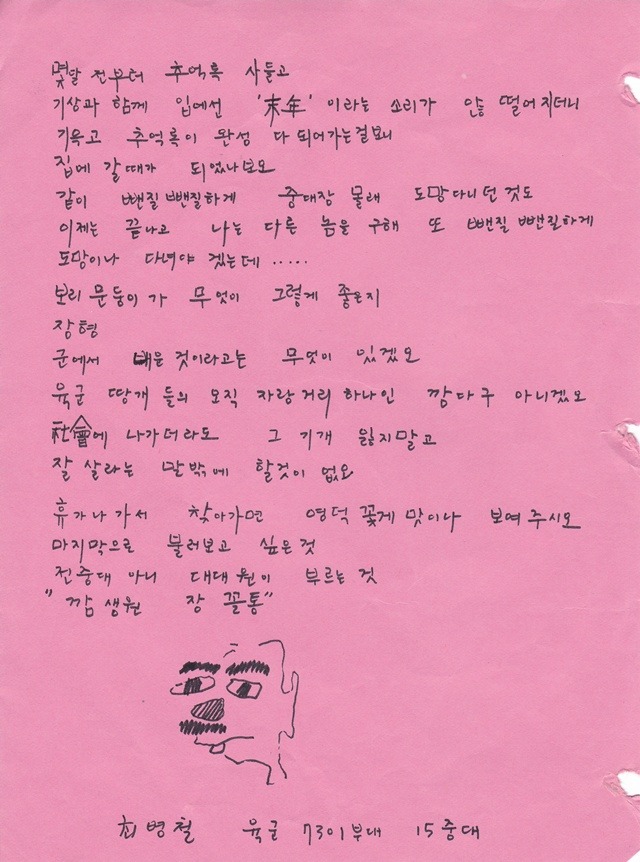 몇달 전부터 추억록 사들고
기상과 함께 입에선 '末年' 이라는 소리가 안 떨어지더니
기욕고 추억록이 완성 다 되어가는걸보니
집에 갈때가 되었나보오
같이 뺀질뺀질하게 중대장 몰래 도망다니던 것도
이제는 끝나고 나는 다른 놈을 구해 또 뺀질 뺀질하게
도망이나 다녀야 겠는데 .....
보리 문둥이 가 무엇이 그렇게 좋은지
장형
군에서 배운 것이라고는 무엇이 있겠오
육군 땅개 들의 오직 자랑거리 하나인 깜다구 아니겠오
社會에 나가더라도 그 기개 잃지말고
잘 살라는 말밖에 할것이 없오
휴가나 가서 찾아가면 영덕 꽃게 맛이나 보여 주시오
마지막으로 불러보고 싶은것
전중대 아니 대대원이 부르는 것
"깜생원 장 꼴통"
최병철 육군 7301부대 15중대